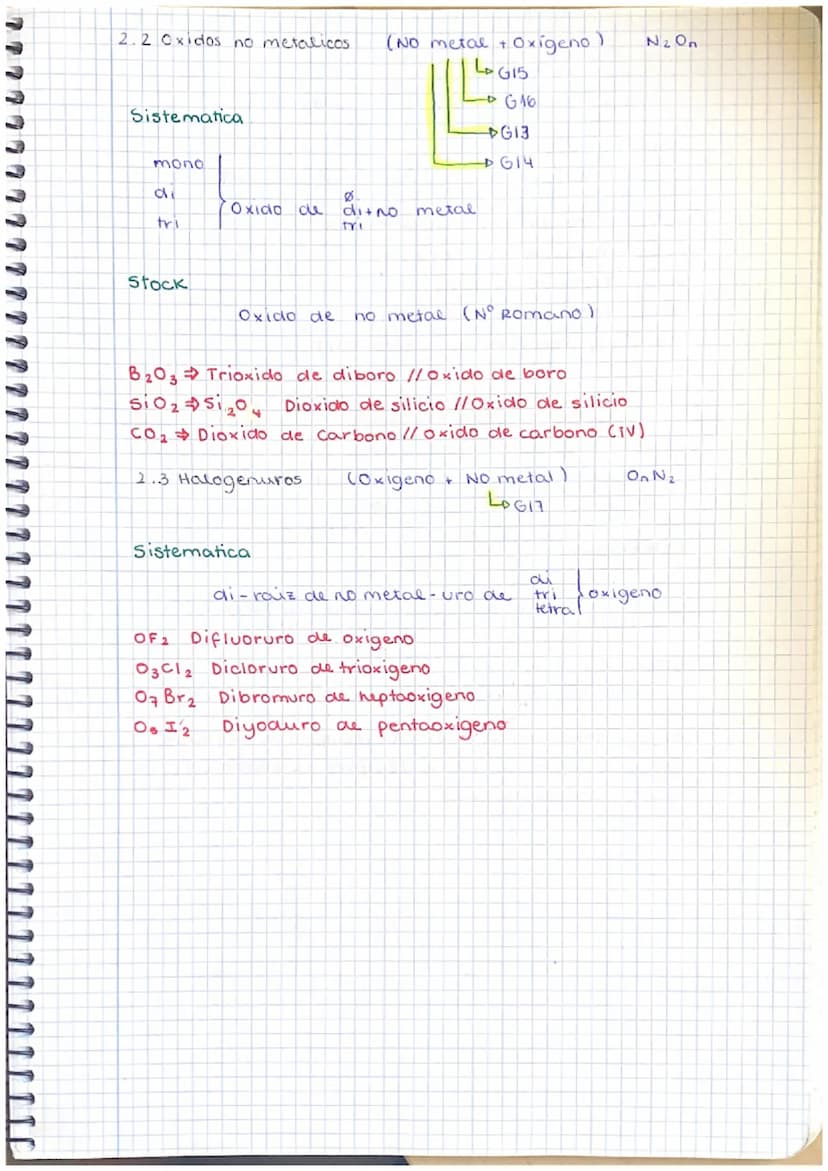 2.2 Oxidos no metalicos (NO metal + Oxígeno) N₂On
G15
G16
Sistematica
G13
mono
G14
di
Ø
Oxido de di+no metal
tri
tri
Stock
Oxido de no metal (Nº Romano)
B₂O₃ ⇒ Trioxido de diboro // Oxido de boro
SiO₂ ⇒ Si₂O₄ Dioxido de silicio // Oxido de silicio
CO₂ ⇒ Dioxido de Carbono // oxido de carbono (IV)
2.3 Halogenuros (Oxigeno + NO metal) OnN₂
G17
Sistematica
di
di-raiz de no metal-uro de tri oxigeno
tetra
OF₂ Difluoruro de oxigeno
O₃Cl₂ Dicloruro de trioxigeno
O₇Br₂ Dibromuro de heptaoxigeno
I₂ Diyoduro de pentaoxigeno